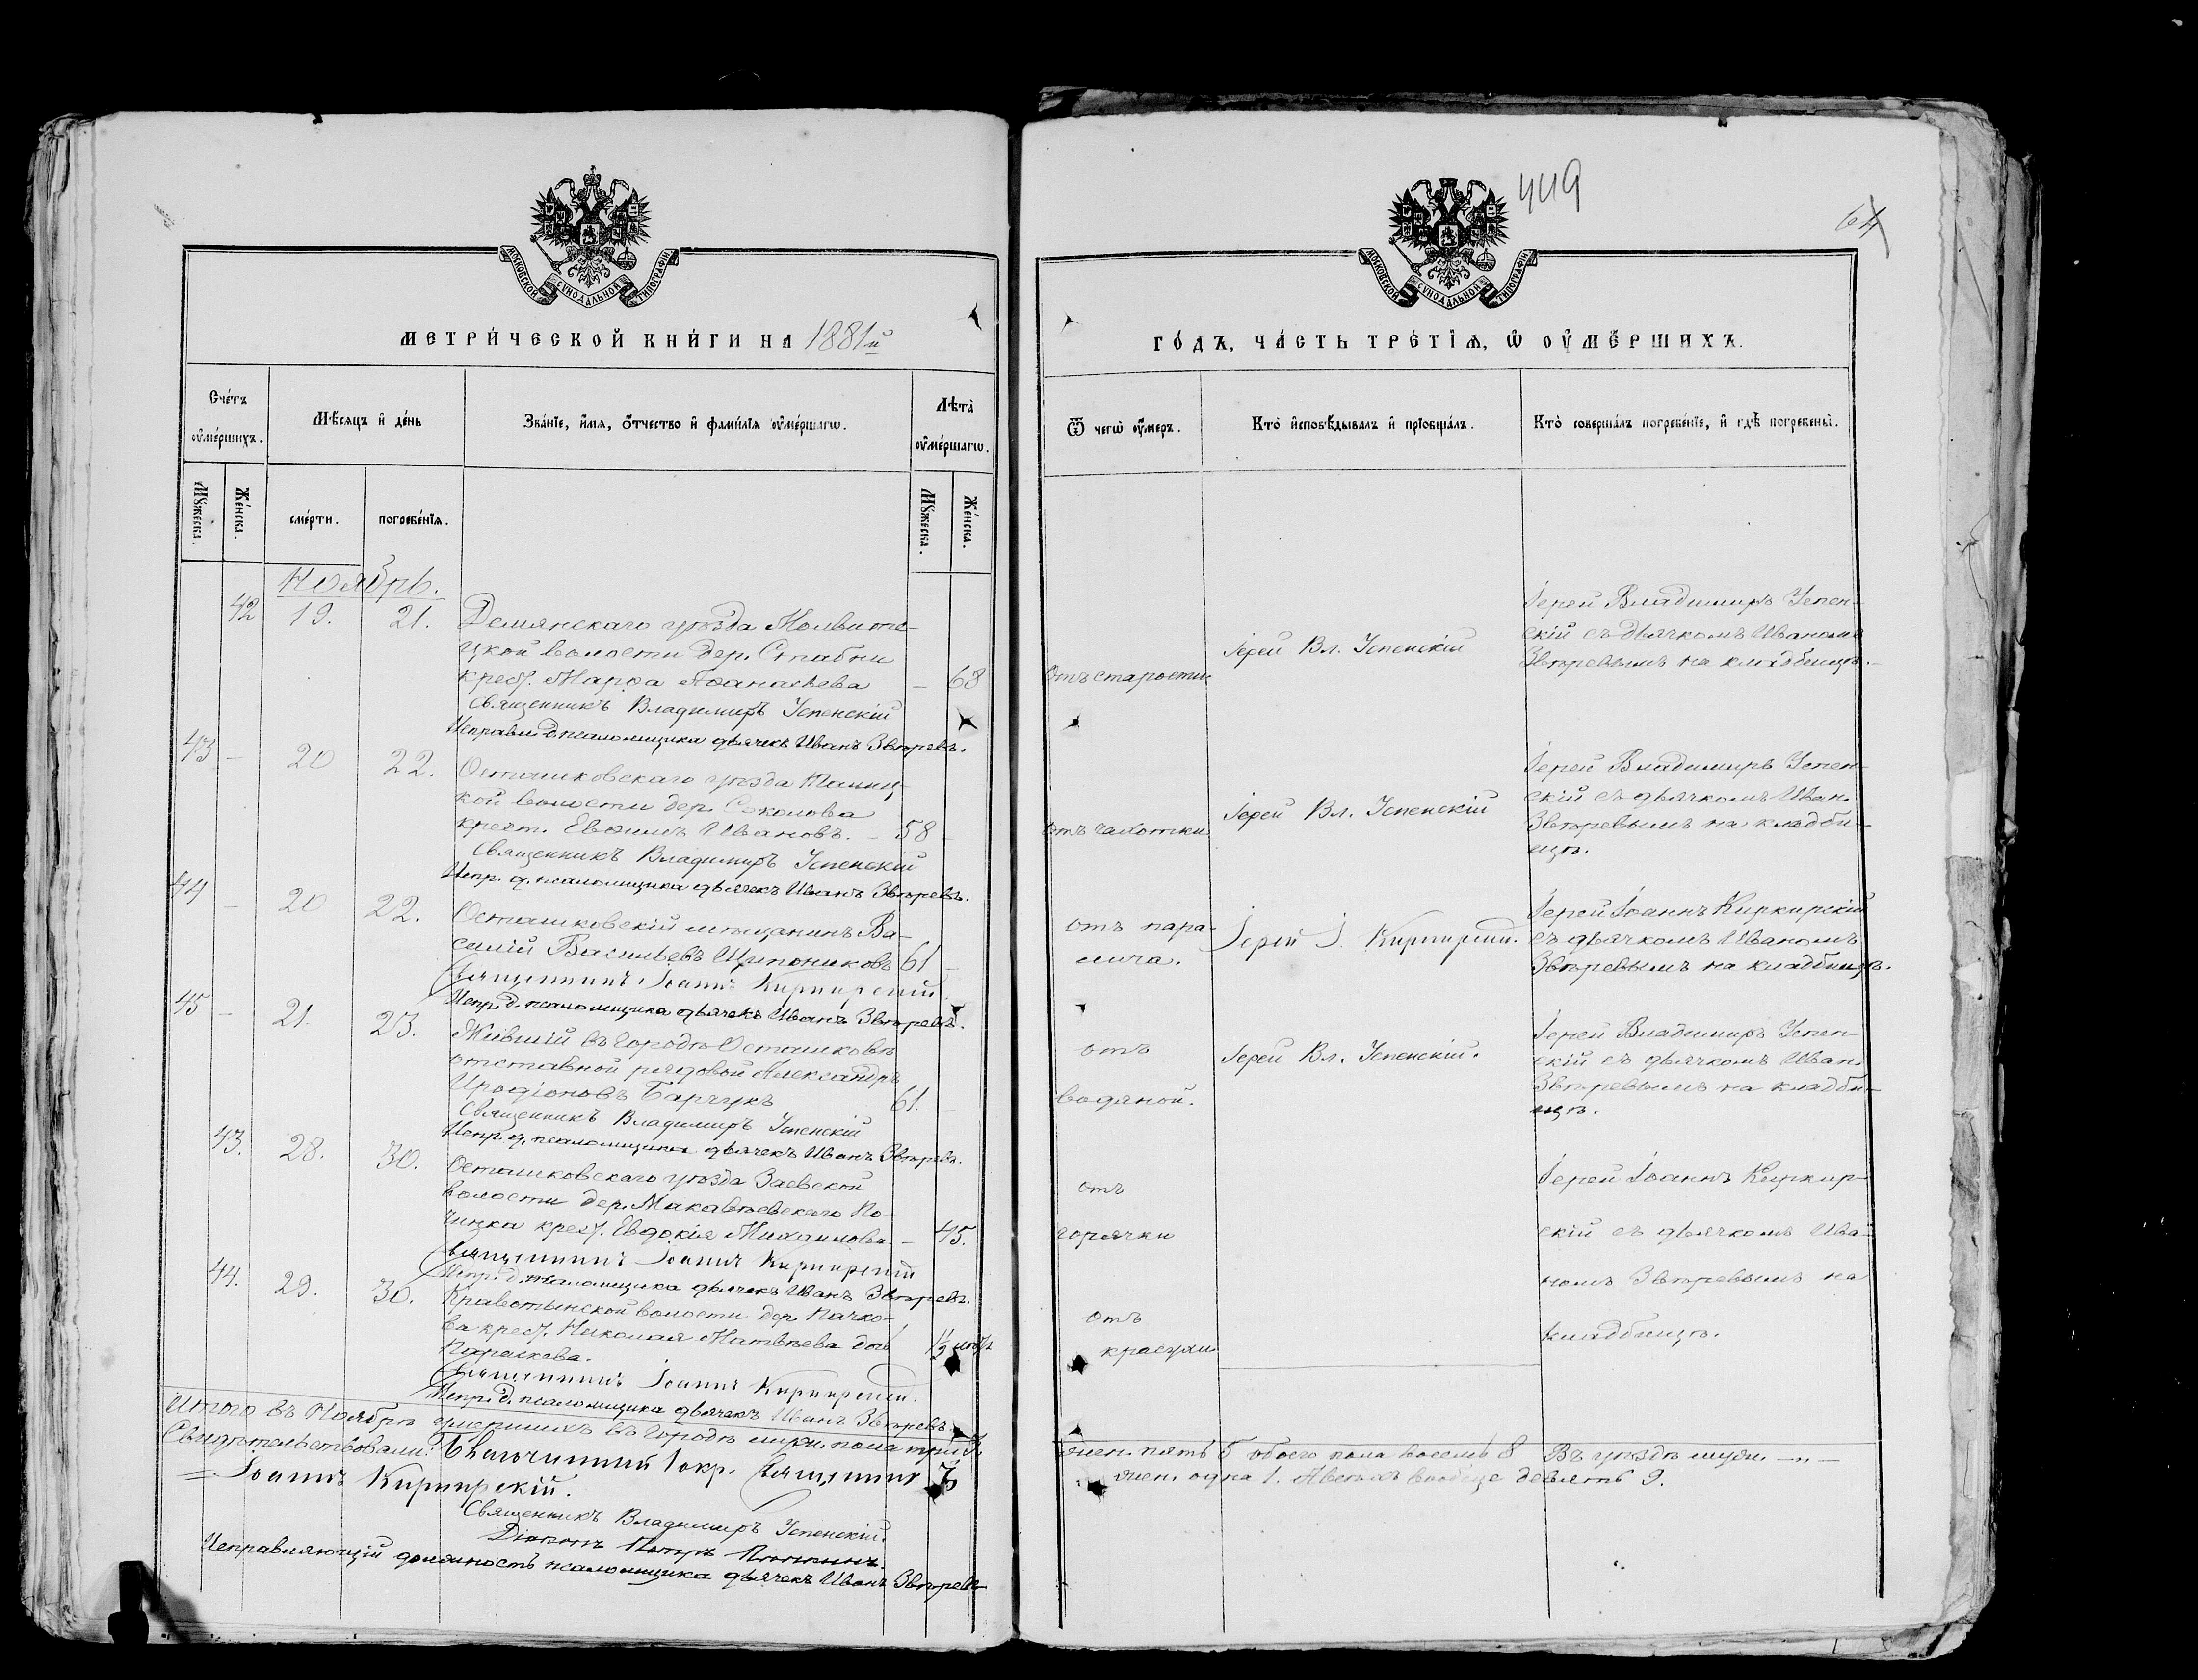 449
64
МОСКОВСКОЙ СѴНОДАЛЬНОЙ ТИПОГРАФІИ
МОСКОВСКОЙ СѴНОДАЛЬНОЙ ТИПОГРАФІИ
МЕТРИ́ЧЕСКОЙ КНИ́ГИ НА 1881й
ГО́ДЪ, ЧА́СТЬ ТРЕ́ТІѦ, Ѡ ОУ҆МЕ́РШИХЪ.
Сче́тъ оу҆ме́ршихъ.
Мѣ́сяцъ и҆ де́нь
Зва́нїе, и҆́мя, ѻ҆́тчество и҆ фами́лїя оу҆ме́ршагѡ.
Лѣ́та оу҆ме́ршагѡ.
Ѿ чегѡ̀ оу҆́меръ.
Кто̀ и҆сповѣ́дывалъ и҆ прїобща́лъ.
Кто̀ соверша́лъ погребе́нїе, и҆ гдѣ̀ погребены̀.
Мꙋ́жеска.
Же́нска.
сме́рти.
погребе́нїя.
Мꙋ́жеска.
Же́нска.
Ноябрь.
42 19. 21. Демянскаго уѣзда Молвити-
цкой волости дер. Стабни
крест. Марѳа Аѳанасьева – 68
Священникъ Владимиръ Успенскій
Исправл. д. псаломщика дьячекъ Иванъ Звѣревъ.
отъ старости
Іерей Вл. Успенскій
Іерей Владимиръ Успен-
скій съ дьячкомъ Иваномъ
Звѣревымъ на кладбищѣ.
43 – 20 22. Осташковскаго уѣзда
кой волости дер. Соколова
крест. Евѳимъ Ивановъ. – 58 –
Священникъ Владимиръ Успенскій
Испр. д. псаломщика дьячекъ Иванъ Звѣревъ.
отъ чахотки
Іерей Вл. Успенскій
Іерей Владимиръ Успен-
скій съ дьячкомъ Иван.
Звѣревымъ на кладби-
щѣ.
44 – 20 22. Осташковскій мѣщанинъ Ва-
силій Васильевъ 61 –
Священникъ Іоаннъ Киркирскій.
Испр. д. псаломщика дьячекъ Иванъ Звѣревъ.
отъ пара-
лича.
Іерей І. Киркирскій.
Іерей Іоаннъ Киркирскій
съ дьячкомъ Иваномъ
Звѣревымъ на кладбищѣ.
45 – 21. 23. Жившій въ городѣ Осташковѣ
отставной рядовой Александръ
Иродіоновъ Барчукъ 61. –
Священникъ Владимиръ Успенскій
Испр. д. псаломщика дьячекъ Иванъ Звѣревъ.
отъ
водяной.
Іерей Вл. Успенскій.
Іерей Владимиръ Успен-
скій съ дьячкомъ Иван.
Звѣревымъ на кладби-
щѣ.
43. 28. 30. Осташковскаго уѣзда Заевской
волости дер. Макавѣевскаго По-
чинка крест. Евдокія Михаилова – 45.
Священникъ Іоаннъ Киркирскій
Испр. д. псаломщика дьячекъ Иванъ Звѣревъ.
отъ
горячки
Іерей Іоаннъ Киркир-
скій съ дьячкомъ Ива-
номъ Звѣревымъ на
кладбищѣ.
44. 29. 30. Кравотынской волости дер. Пачко-
ва крест. Николая Матвѣева дочь
Параскева.
Священникъ Іоаннъ Киркирскій.
Испр. д. псаломщика дьячекъ Иванъ Звѣревъ.
отъ
краснухи
Итого въ Ноябрѣ умершихъ въ городѣ муж. пола три 3
жен. пять 5 обоего пола восемь 8 Въ уѣздѣ муж. –„–
жен. одна 1. А всѣхъ вообще девять 9.
Свидѣтельствовали: Благочинный 1 окр. Священникъ
Іоаннъ Киркирскій.
Священникъ Владимиръ Успенскій.
Діаконъ Петръ
Исправляющій должность псаломщика дьячекъ Иванъ Звѣревъ